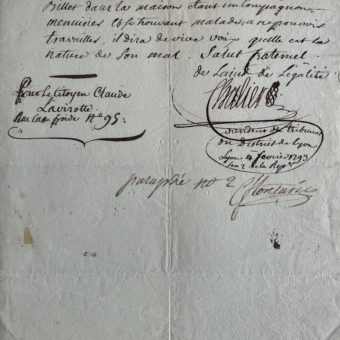 Billot dans la maison étant un Compagnon
menuisier et se trouvant malade, a ne pouvoir
travailler, il dira de vive voix quelle est la
nature de son mal. Salut fraternel
de l'ainé de Légalité
Chalier
Pour le citoyen Claude
Lavirotte
Rue N° 95.
président du tribunal
du District de Lyon
Lyon 4 février 1793
l'an 2 de la Rep.
paraphé N° 2